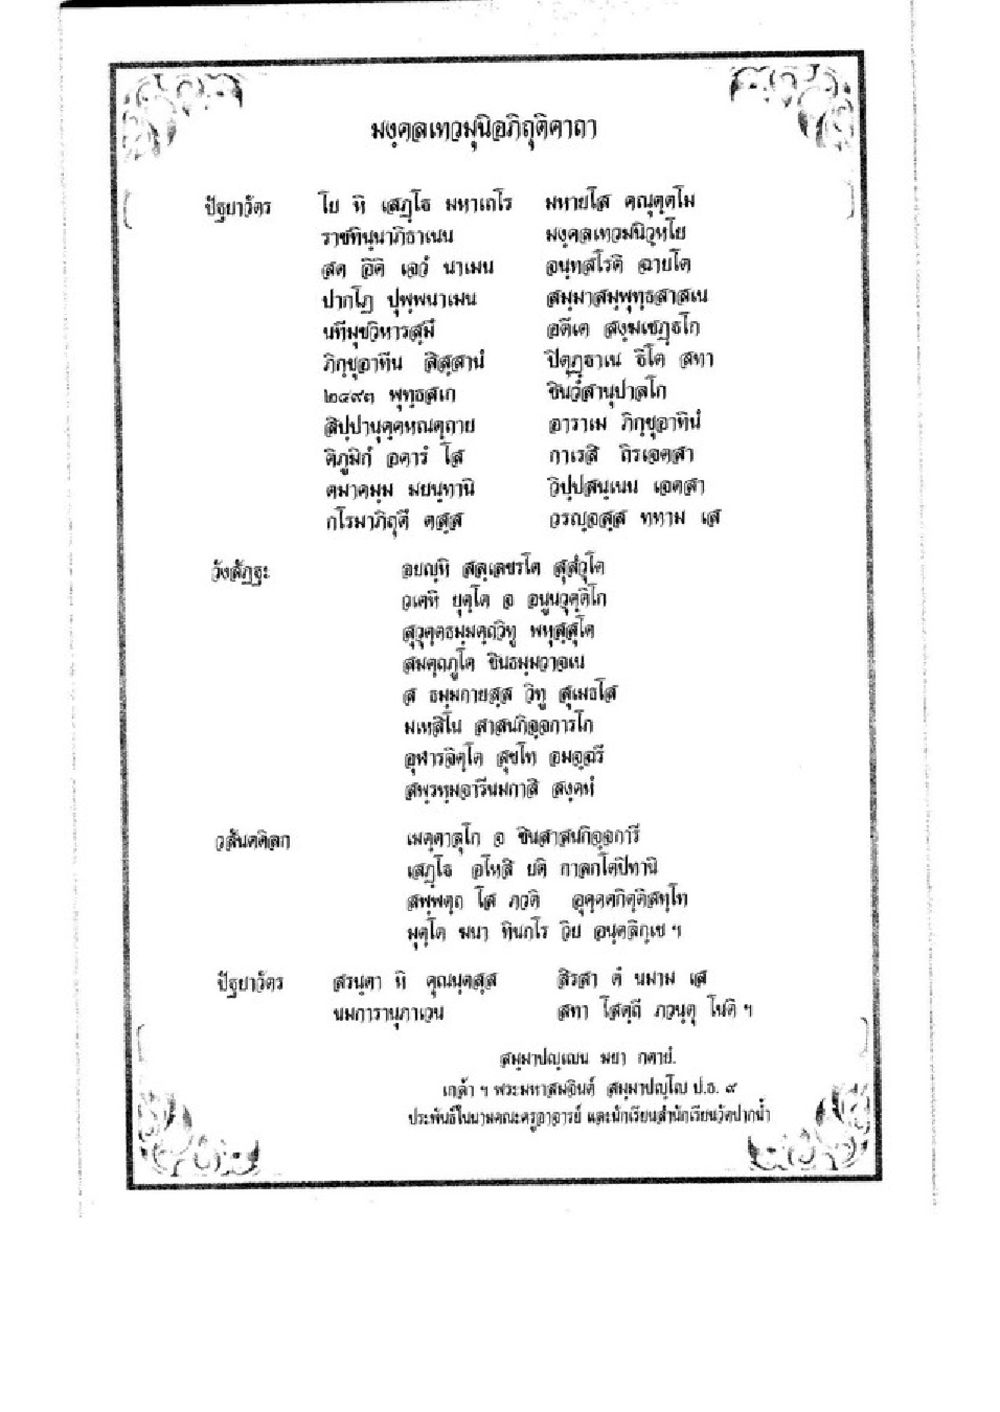 มงฺคลเทวมุนิอภิถุติคาถา
ปัฐยาวัตร โย หิ เสฏฺโฐ มหาเถโร มหายโส คณุตฺตโม
ราชทินฺนาภิธาเนน มงฺคลเทวมนิวฺหโย
สต อิติ เอวํ นาเมน จนฺทสโรติ ฉายโต
ปากโฏ ปุพฺพนาเมน สมฺมาสมฺพุทฺธสาสเน
นทีมุขวิหารสฺมึ อตีเต สงฺฆเชฏฺฐโก
ภิกฺขุอาทีน สิสฺสานํ ปิตุฏฺฐาเน ฐิโต สทา
๒๔๙๓ พุทฺธสเก ชินวํสานุปาลโก
สิปฺปานุคฺคหณตฺถาย อาราเม ภิกฺขุอาทินํ
ติภูมิกํ อคารํ โส กาเรสิ ถิรเจตสา
ตมาคมฺม มยนฺทานิ วิปฺปสนฺเนน เจตสา
กโรมาภิถุตึ ตสฺส วรญฺจสฺส ททาม เส
วังสัฏฐะ อยญฺหิ สลฺเลขรโต สุสํวุโต
วเตหิ ยุตฺโต จ อนูนวุตฺติโก
สุวุตฺตธมฺมตฺถวิทู พหุสฺสุโต
สมตฺถภูโต ชินธมฺมวาจเน
ส ธมฺมกายสฺส วิทู สุเมธโส
มเหสิโน สาสนกิจฺจการโก
อุฬารจิตฺโต สุขโท อมจฺฉรี
สพฺรหฺมจารีนมกาสิ สงฺคหํ
วสันตติลก เมตฺตาลุโก จ ชินสาสนกิจฺจการี
เสฏฺโฐ อโหสิ ยติ กาลกโตปิทานิ
สพฺพตฺถ โส ภวติ อุคฺคตกิตฺติสทฺโท
มุตฺโต ฆนา ทินกโร วิย อนฺตลิกฺเข ฯ
ปัฐยาวัตร สรนฺตา หิ คุณนฺตสฺส สิรสา ตํ นมาม เส
นมการานุภาเวน สทา โสตฺถี ภวนฺตุ โนติ ฯ
สมฺมาปญฺเญน มยา กตายํ.
เกล้า ฯ พระมหาสมจินต์ สมฺมาปญฺโญ ป.ธ. ๙
ประพันธ์ในนามคณะครูอาจารย์ และนักเรียนสำนักเรียนวัดปากน้ำ